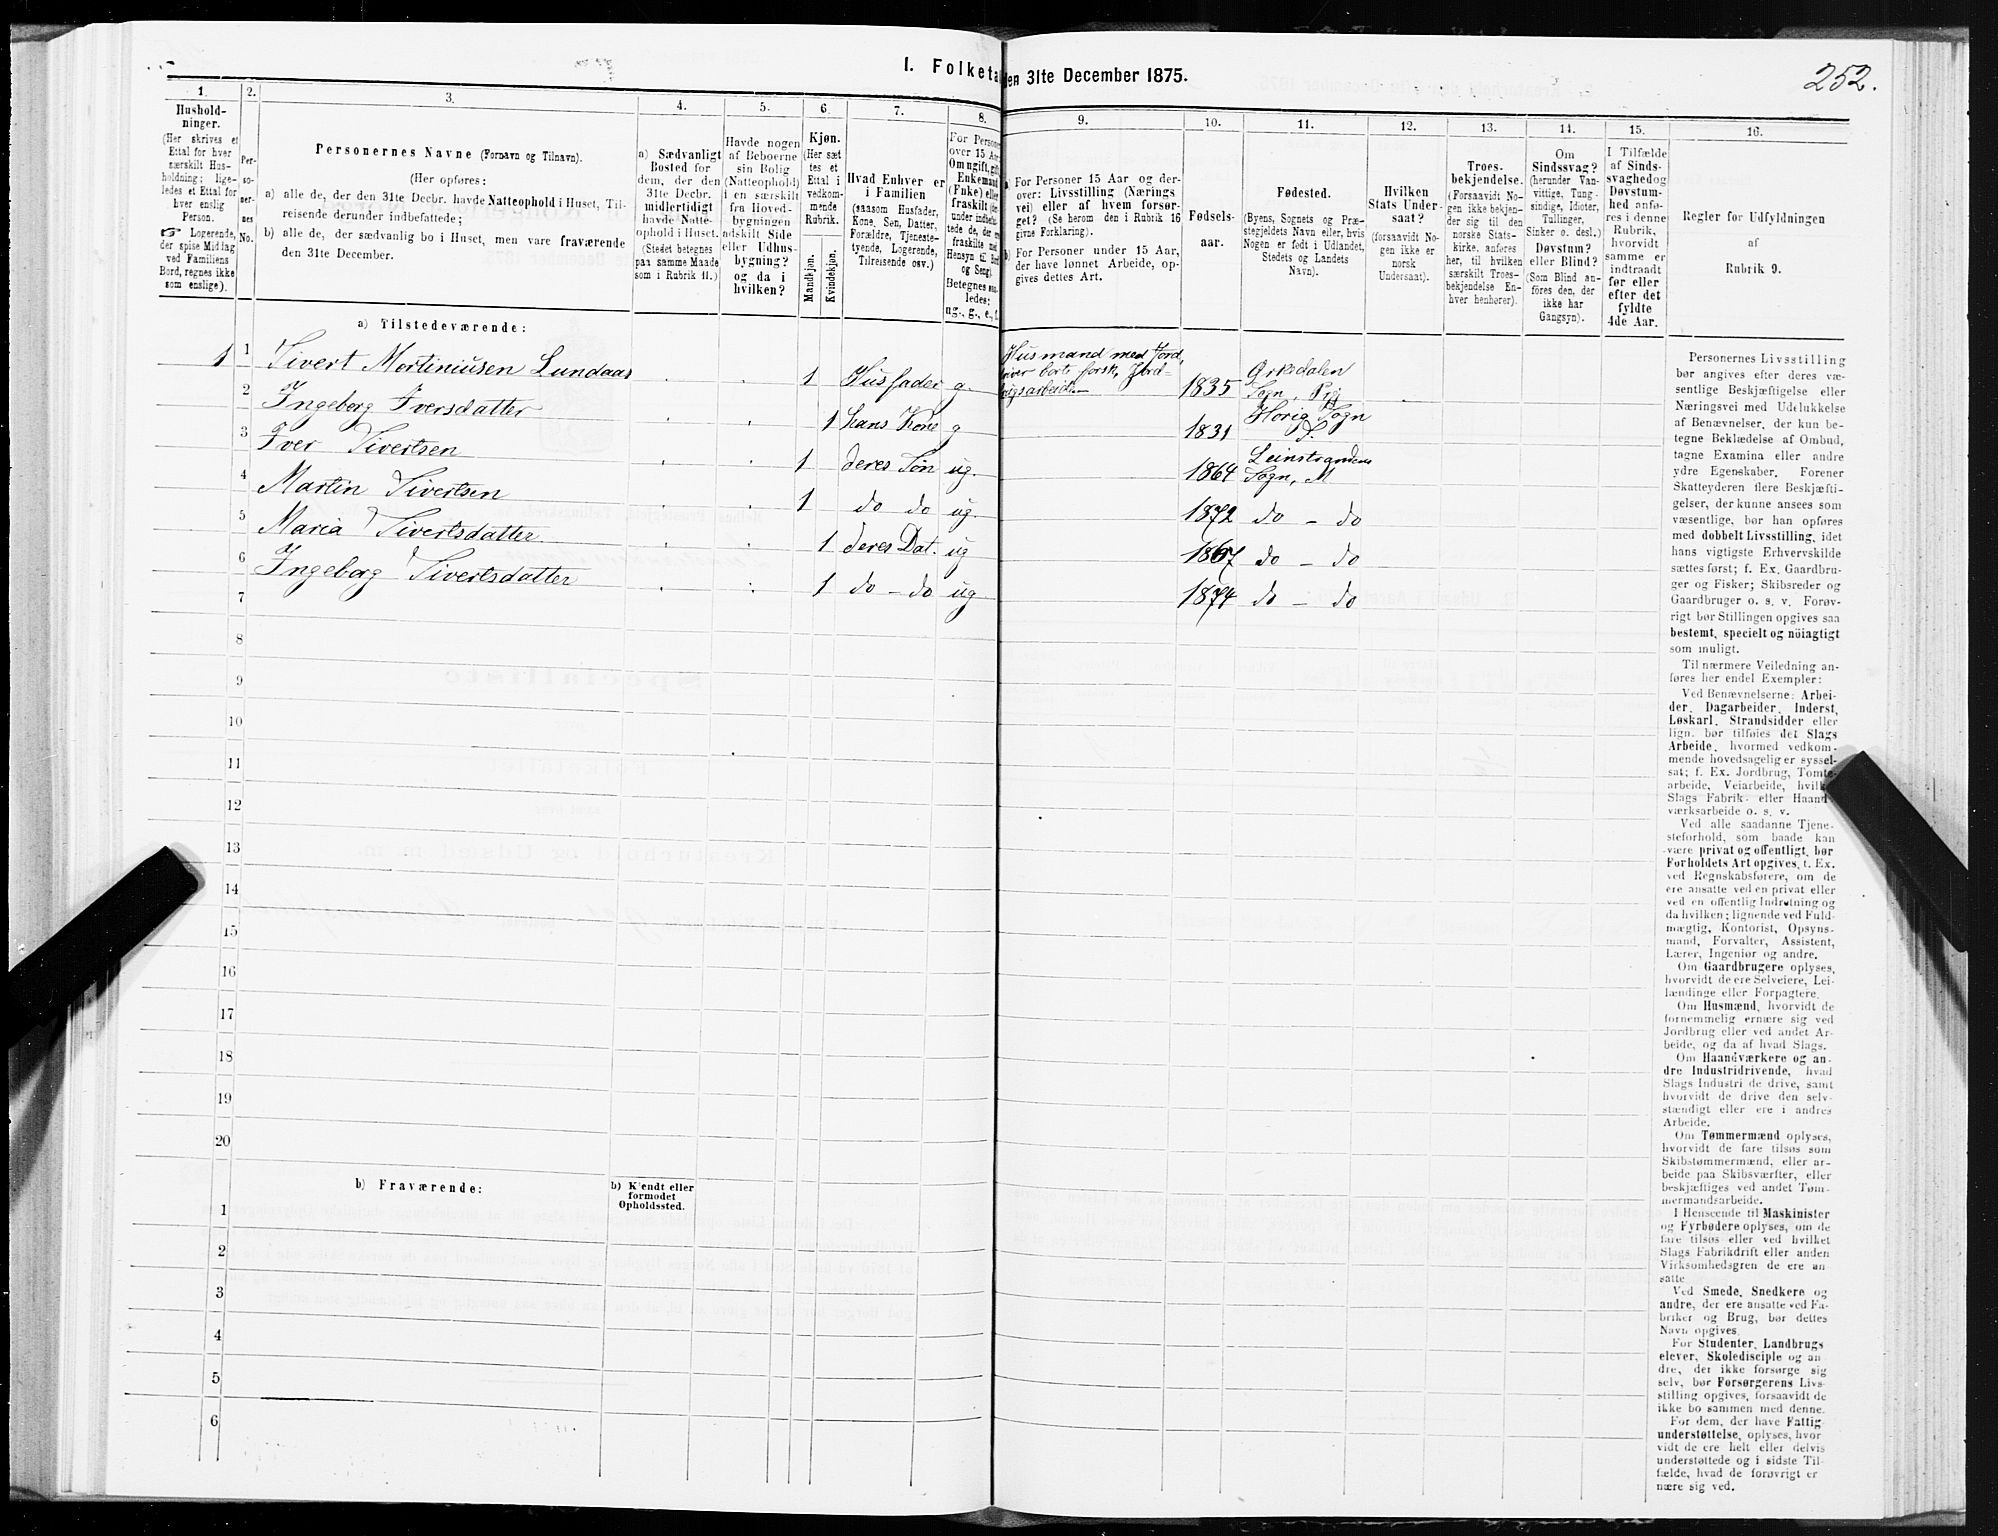 I. Folketa
den 31te December 1875.
252.
1.
Hushold-
ninger.
(Her skrives et
Ettal for hver
særskilt Hus-
holdning; lige-
ledes et Ettal for
hver enslig
Person.
☞ Logerende,
der spise Middag
ved Familiens
Bord, regnes ikke
som enslige).
2.
Per-
so-
ner-
nes
No.
3.
Personernes Navne (Fornavn og Tilnavn).
(Her opføres:
a) alle de, der den 31te Decbr. havde Natteophold i Huset, Til-
reisende derunder indbefattede;
b) alle de, der sædvanlig bo i Huset, men vare fraværende
den 31te December.
4.
a) Sædvanligt
Bosted for
dem, der den
31te Decbr.
midlertidigt
havde Natte-
ophold i Huset.
(Stedet betegnes
paa samme Maade
som i Rubrik 11.)
5.
Havde nogen
af Beboerne
sin Bolig
(Natteophold)
i en særskilt
fra Hoved-
bygningen
adskilt Side
eller Udhus-
bygning?
og da i
hvilken?
6.
Kjøn.
(Her sæt
tes et
Ettal i
vedkom-
mende
Rubrik.
Mandkjøn.
Kvindekjøn.
7.
Hvad Enhver er
i Familien
(saasom Husfader,
Kone, Søn, Datter,
Forældre, Tjeneste-
tyende, Logerende,
Tilreisende osv.)
8.
For Personer
over 15 Aar:
Om ugift, gift,
Enkemand
(Enke) eller
fraskilt
Betegnes saa-
ledes:
ug., g., e., f.
9.
a) For Personer 15 Aar og der-
over: Livsstilling (Nærings
vei) eller af hvem forsør-
get? (Se herom den i Rubrik 16
givne Forklaring).
b) For Personer under 15 Aar,
der have lønnet Arbeide, op-
gives dettes Art.
10.
Fødsels-
aar.
11.
Fødested.
(Byens, Sognets og Præ-
stegjeldets Navn eller, hvis
Nogen er født i Udlandet,
Stedets og Landets
Navn).
12.
Hvilken
Stats Under-
saat?
(forsaavidt No-
gen ikke er
norsk
Undersaat).
13.
Troes-
bekjendelse.
(Forsaavidt No-
gen ikke bekjen-
der sig til den
norske Stats-
kirke, anføres
her, til hvilken
særskilt Troes-
bekjendelse En-
hver henhører).
14.
Om
Sindssvag?
(herunder Van-
vittige, Tung-
sindige, Idioter,
Tullinger,
Sinker o. desl.)
Døvstum?
eller Blind?
(Som Blind an-
føres den, der
ikke har
Gangsyn).
15.
I Tilfælde
af Sinds-
svaghed og
Døvstum-
hed anfø-
res i denne
Rubrik,
hvorvidt
samme er
indtraadt
før eller
efter det
fyldte
4de Aar.
16.
Regler for Udfyldningen
af
Rubrik 9.
a) Tilstedeværende:
1 1 Sivert Mortinusen Lundaas 1 Husfader g. Husmand med Jord, driver borts. forsk. Jord-brugsarbeide 1835 Orkedalen Sogn, Prgj
2 Ingeborg Iversdatter 1 hans Kone g 1831 Horig Sogn
3 Iver Sivertsen 1 deres Søn ug. 1864 Leinstrandens Sogn, M
4 Martin Sivertsen 1 do do ug. 1872 do - do
5 Maria Sivertsdatter 1 deres Dat. ug 1867 do - do
6 Ingeborg Sivertsdatter 1 do - do ug 1874 do - do
7
8
9
10
11
12
13
14
15
16
17
18
19
20
b) Fraværende:
b) Kjendt eller
formodet
Opholdssted.
1
2
3
4
5
6
Personernes Livsstilling
bør angives efter deres væ-
sentlige Beskjæftigelse eller
Næringsvei med Udelukkelse
af Benævnelser, der kun be-
tegne Beklædelse af Ombud,
tagne Examina eller andre
ydre Egenskaber. Forener
Skatteyderen flere Beskjæfti-
gelser, der kunne ansees som
væsentlige, bør han opføres
med dobbelt Livsstilling, idet
hans vigtigste Erhvervskilde
sættes først; f. Ex. Gaardbru-
ger og Fisker; Skibsreder og
Gaardbruger o. s. v. Forøv-
rigt bør Stillingen opgives saa
bestemt, specielt og nøiagtigt
som muligt.
Til nærmere Veiledning an-
føres her endel Exempler:
Ved Benævnelserne: Arbei-
der, Dagarbeider, Inderst,
Løskarl, Strandsidder eller
lign. bør tilføies det Slags
Arbeide, hvormed vedkom-
mende hovedsagelig er syssel-
sat; f. Ex. Jordbrug, Tomte-
arbeide, Veiarbeide, hvilket
Slags Fabrik- eller Haand-
værksarbeide o. s. v.
Ved alle saadanne Tjene-
steforhold, som baade kan
være privat og offentligt, bør
Forholdets Art opgives, f. Ex.
ved Regnskabsførere, om de
ere ansatte ved en privat eller
ved en offentlig Indretning og
da hvilken; lignende ved Fuld-
mægtig, Kontorist, Opsyns-
mand, Forvalter, Assistent,
Lærer, Ingeniør og andre.
Om Gaardbrugere oplyses,
hvorvidt de ere Selveiere, Lei-
lændinge eller Forpagtere.
Om Husmænd, hvorvidt de
fornemmelig ernære sig ved
Jordbrug eller ved andet Ar-
beide, og da af hvad Slags.
Om Haandværkere og an-
dre Industridrivende, hvad
Slags Industri de drive, samt
hvorvidt de drive den selv-
stændigt eller ere i andres
Arbeide.
Om Tømmermænd oplyses,
hvorvidt de fare tilsøs som
Skibstømmermænd, eller ar-
beide paa Skibsværfter, eller
beskjæftiges ved andet Tøm-
mermandsarbeide.
I Henseende til Maskinister
og Fyrbødere oplyses, om de
fare tilsøs eller ved hvilket
Slags Fabrikdrift eller anden
Virksomhedsgren de ere an-
satte
Ved Smede, Snedkere og
andre, der ere ansatte ved Fa-
briker og Brug, bør dettes
Navn opgives.
For Studenter, Landbrugs
elever, Skoledisciple og an-
dre, der ikke forsørge sig
selv, bør Forsørgerens Livs-
stilling opgives, forsaavidt de
ikke bo sammen med denne.
For dem, der have Fattig
understøttelse, oplyses, hvor
vidt de ere helt eller delvis
understøttede og i sidste Til-
fælde, hvad de forøvrigt er
nære sig ved.